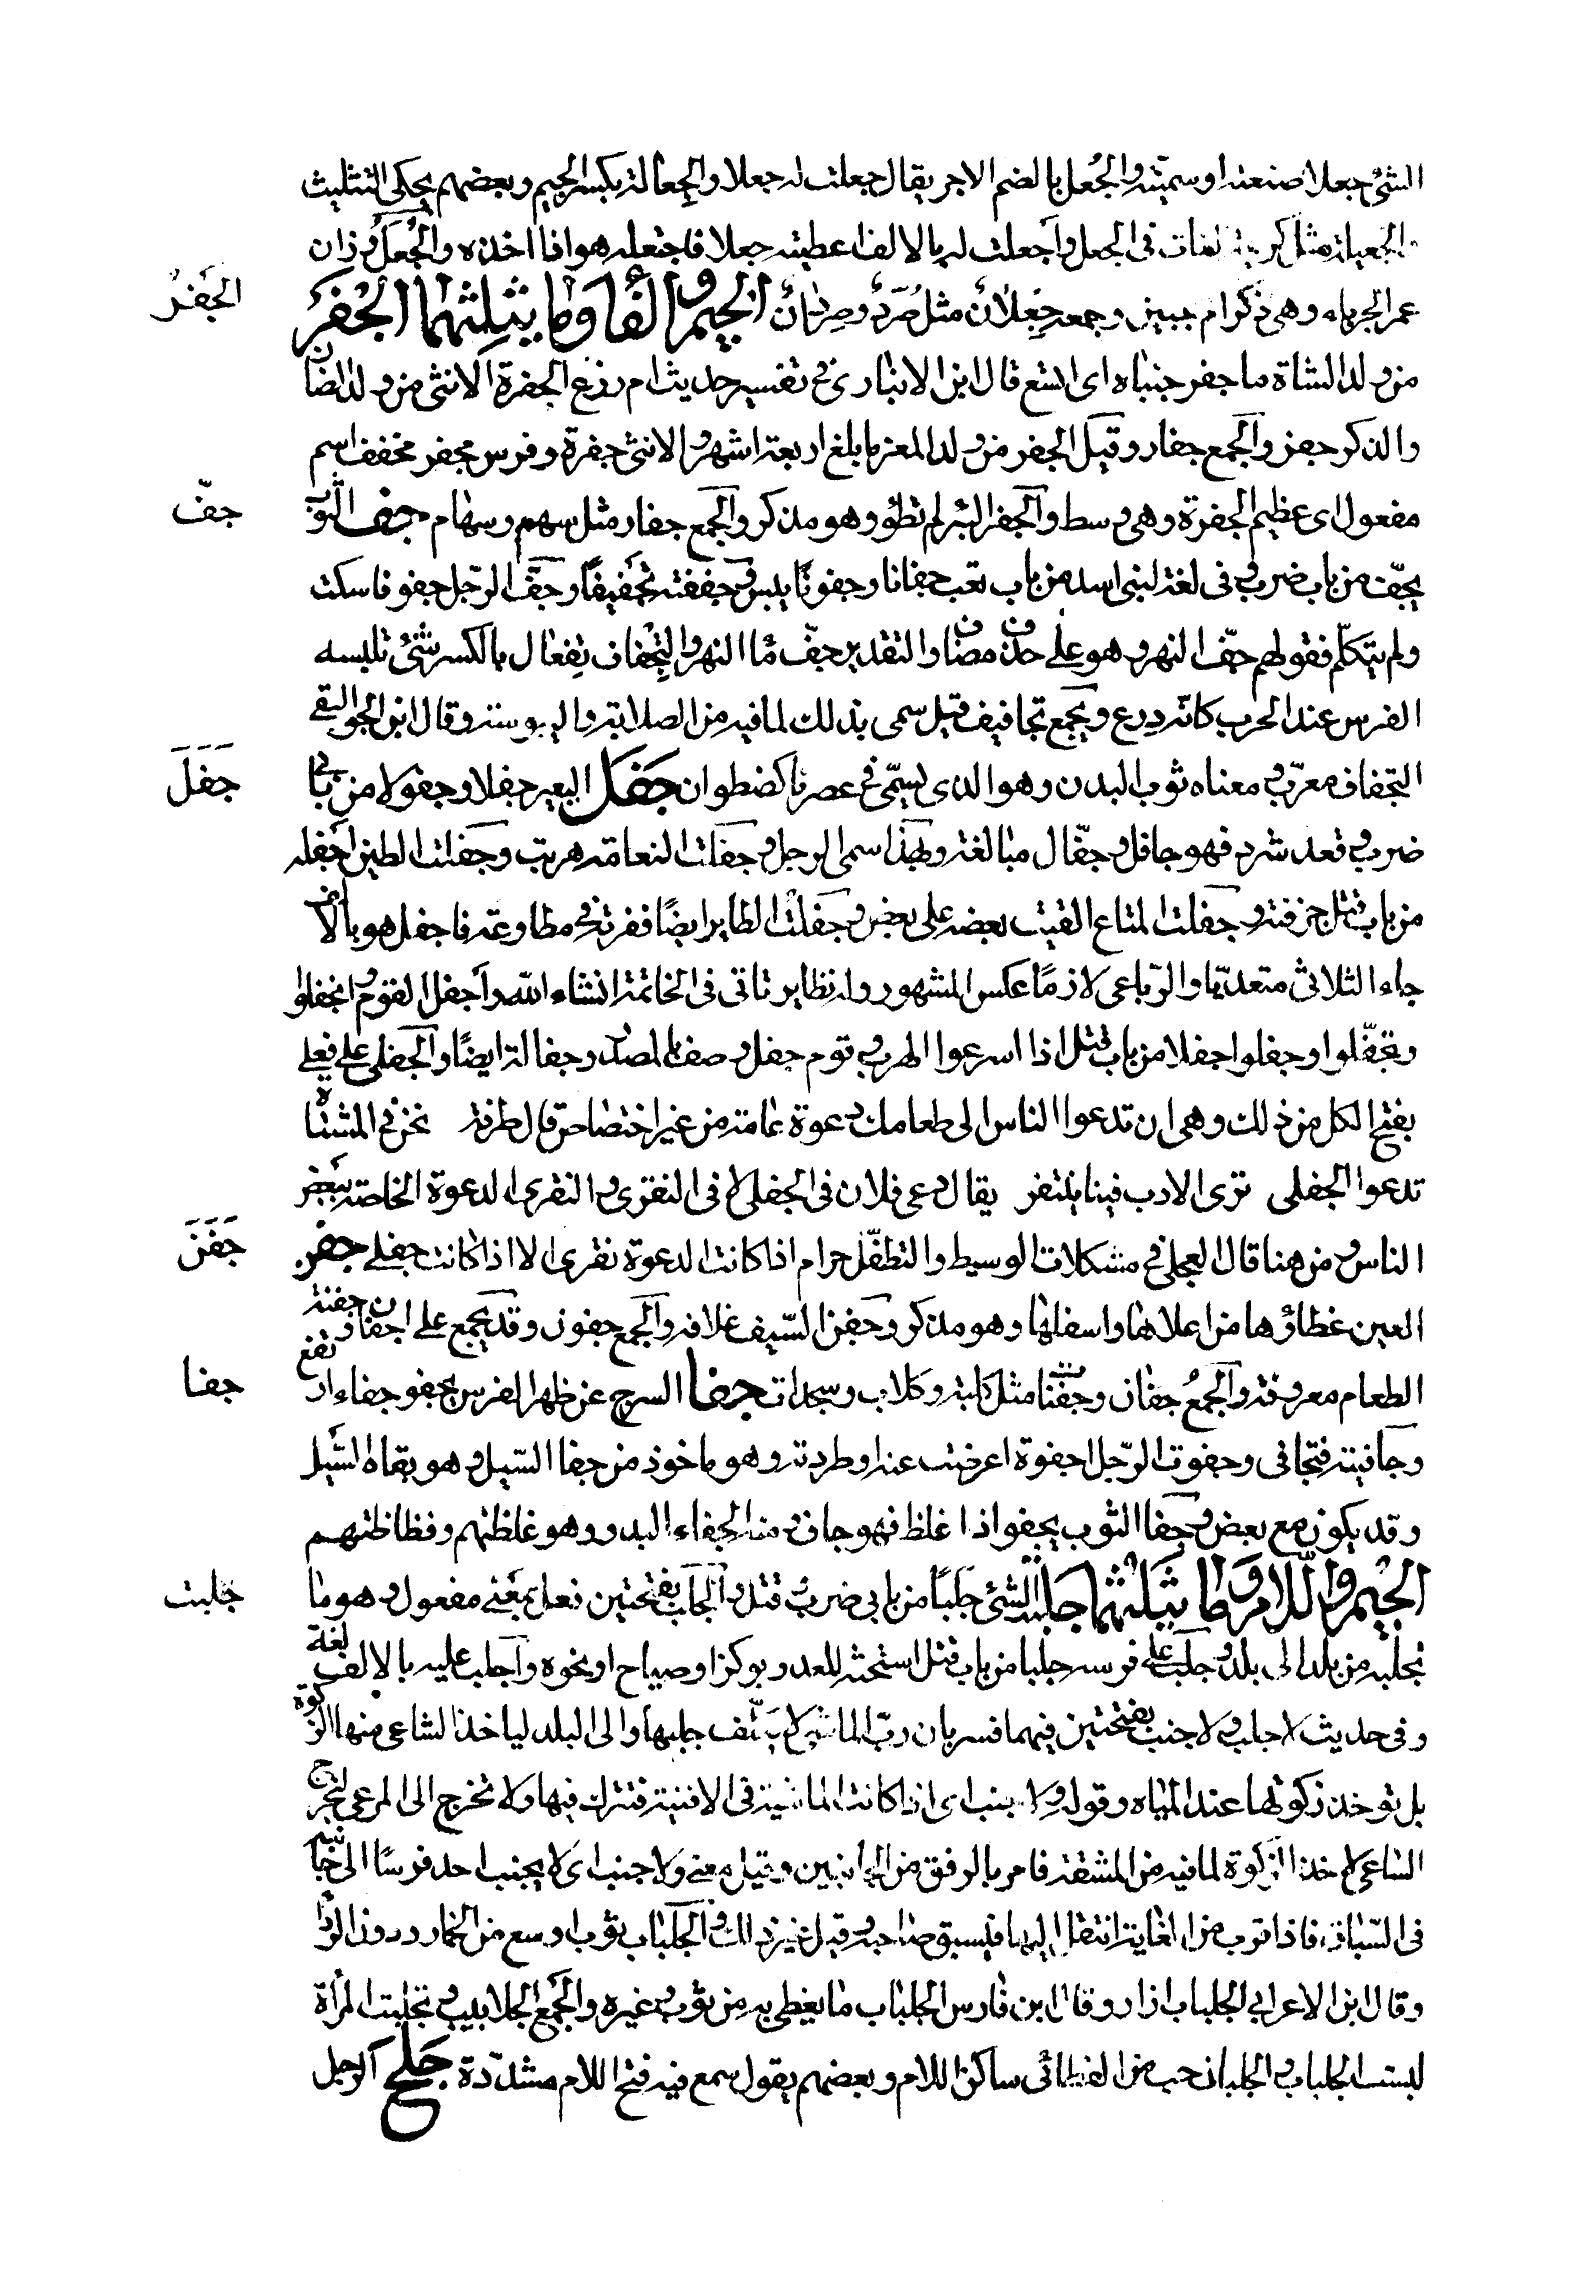 الشئ جعلا صنعته او سميته والجُعل بالضم الاجر يقال جعلت له جعلا والجِعالة بكسر الجيم وبعضهم يحكى التثليث
والجعيلة مثل كريمة لغات فى الجعل وأجعلت له بالالف اعطيته جعلا فاجتعله هو اذا اخذه والجُعَل وزان
عمر الحرباء وهى ذكر ام حبين وجمعه جِعلانٌ مثل صُرَدٌ وصِردانٌ الجيم والفا وما يثلثهما الجَفْرَ
من ولد الشاة ما جفر جنباه اى اتسع قال ابن الانبارى فى تفسير حديث ام زرع الجفرة الانثى من ولد الضان
والذكر جفر والجمع جفار وقيل الجفر من ولد المعز ما بلغ اربعة اشهر والانثى جفرة وفرس مجفر مخفف اسم
مفعول اى عظيم الجفرة وهى وسط والجفر البئر لم تطو وهو مذكر والجمع جفار مثل سهم وسهام جف الثوب
يجفّ من باب ضرب وفى لغة لبنى اسد من باب تعب جفافا وجفوفًا يبس وجففته تجفيفًا وجفّ الرّجل جفوفا سكت
ولم يتكلّم فقولهم جفّ النهر وهو على حذف مضاف والتقدير جفّ مآ النهر والتِجْفاف تِفعال بالكسر شئ تلبسه
الفرس عند الحرب كانّه درع ويجمع تجافيف قيل سمى بذلك لما فيه من الصلابة واليبوسة وقال ابن الجواليقى
التجفاف معرّب ومعناه ثوب البدن وهو الذى يسمّى فى عصرنا كضطوان جَفَلَ البعير جفلا وجفولا من بابى
ضرب وقعد شرد فهو جافل وجفّال مبالغة وبهذا سمى الرجل وجفلت النعامة هربت وجفلت الطين اجفله
من باب قتل جرفته وجفلت المتاع القيت بعضه على بعض وجفلت الطاير ايضًا نفرته وفى مطاوعه فاجفل هو بالالف
جاء الثلاثى متعديّا والرّباعى لازمًا عكس المشهور وله نظاير تاتى فى الخاتمة انشاء اللّه وأجفل القوم وانجفلوا
وتجفّلوا وجفلوا جفلا من باب قتل اذا اسرعوا الهرب وقوم جفل وصف بالمصدر وجفالة ايضًا والجفلى على فعلى
بفتح الكل من ذلك وهى ان تدعوا الناس الى طعامك دعوة عامة من غير اختصاص قال طرفة نحن فى المشتاة
تدعوا الجفلى ترى الادب فينا ينتقر يقال دعى فلان فى الجفلى لا فى النقرى والنقرى الدعوة الخاصة ببعض
الناس ومن هنا قال العجلى فى مشكلات الوسيط والتطفّل حرام اذا كانت الدعوة نقرى لا اذا كانت جفلى جفن
العين غطاؤها من اعلاها واسفلها وهو مذكر وجفن السّيف غلافه والجمع جفون وقد يجمع على اجفان وجفنة
الطعام معروفة والجمعُ جفان وجفنات مثل كلبة وكلاب وسجدات جفا السرج عن ظهر الفرس يجفو جفاء ارتفع
وجافيته فتجافى وجفوت الرّجل اجفوة اعرضت عنه او طردته وهو ماخوذ من جفا السّيل وهو بقاه السّيل
وقد يكون مع بعض وجفا الثوب يجفو اذا غلظ فهو جاف منه الجفاء البدو وهو غلظتهم وفظاظتهم
الجيم واللام وما يثلثهما جلبت الشئ جَلبًا من بابى ضرب وقتل والجلب بفتحتين فعل بمعنى مفعول وهو ما
تجلبه من بلد الى بلد وجلب على فرسه جلبا من باب قتل استحثه للعدو بوكز او صياح او نحوه وأجلب عليه بالالف لغة
وفى حديث لا جلب ولا جنب بفتحتين فيهما فسر بان ربّ الماشية لا يكلّف جلبها الى البلد لياخذ الساعى منها الزكوة
بل توخذ زكوتها عند المياه وقوله ولا جنب اى اذا كانت الماشية فى الافنية فتترك فيها ولا تخرج الى المرعى ليخرج
الساعى لاخذ الزكوة لما فيه من المشقة فامر بالرفق من الجانبين وقيل معنى ولا جنب اى لا يجنب احد فرسًا الى جانبه
فى السّباق فاذا قرب من الغاية انتقل اليها فيسبق صاحبه وقيل غير ذلك والجلباب ثوب اوسع من الخمار ودون الردآ
وقال ابن الاعرابى الجلباب ازار وقال ابن فارس الجلباب ما يغطى به من ثوب وغيره والجَمع الجلابيب وتجلببت المرأة
لبست الجلباب والجلبان حب من القطانى ساكن اللام وبعضهم يقول سمع فيه فتح اللام مشدّدة جَلح الرجل
الجَفرُ
جفّ
جَفَلَ
جَفَنَ
جفا
جلبت